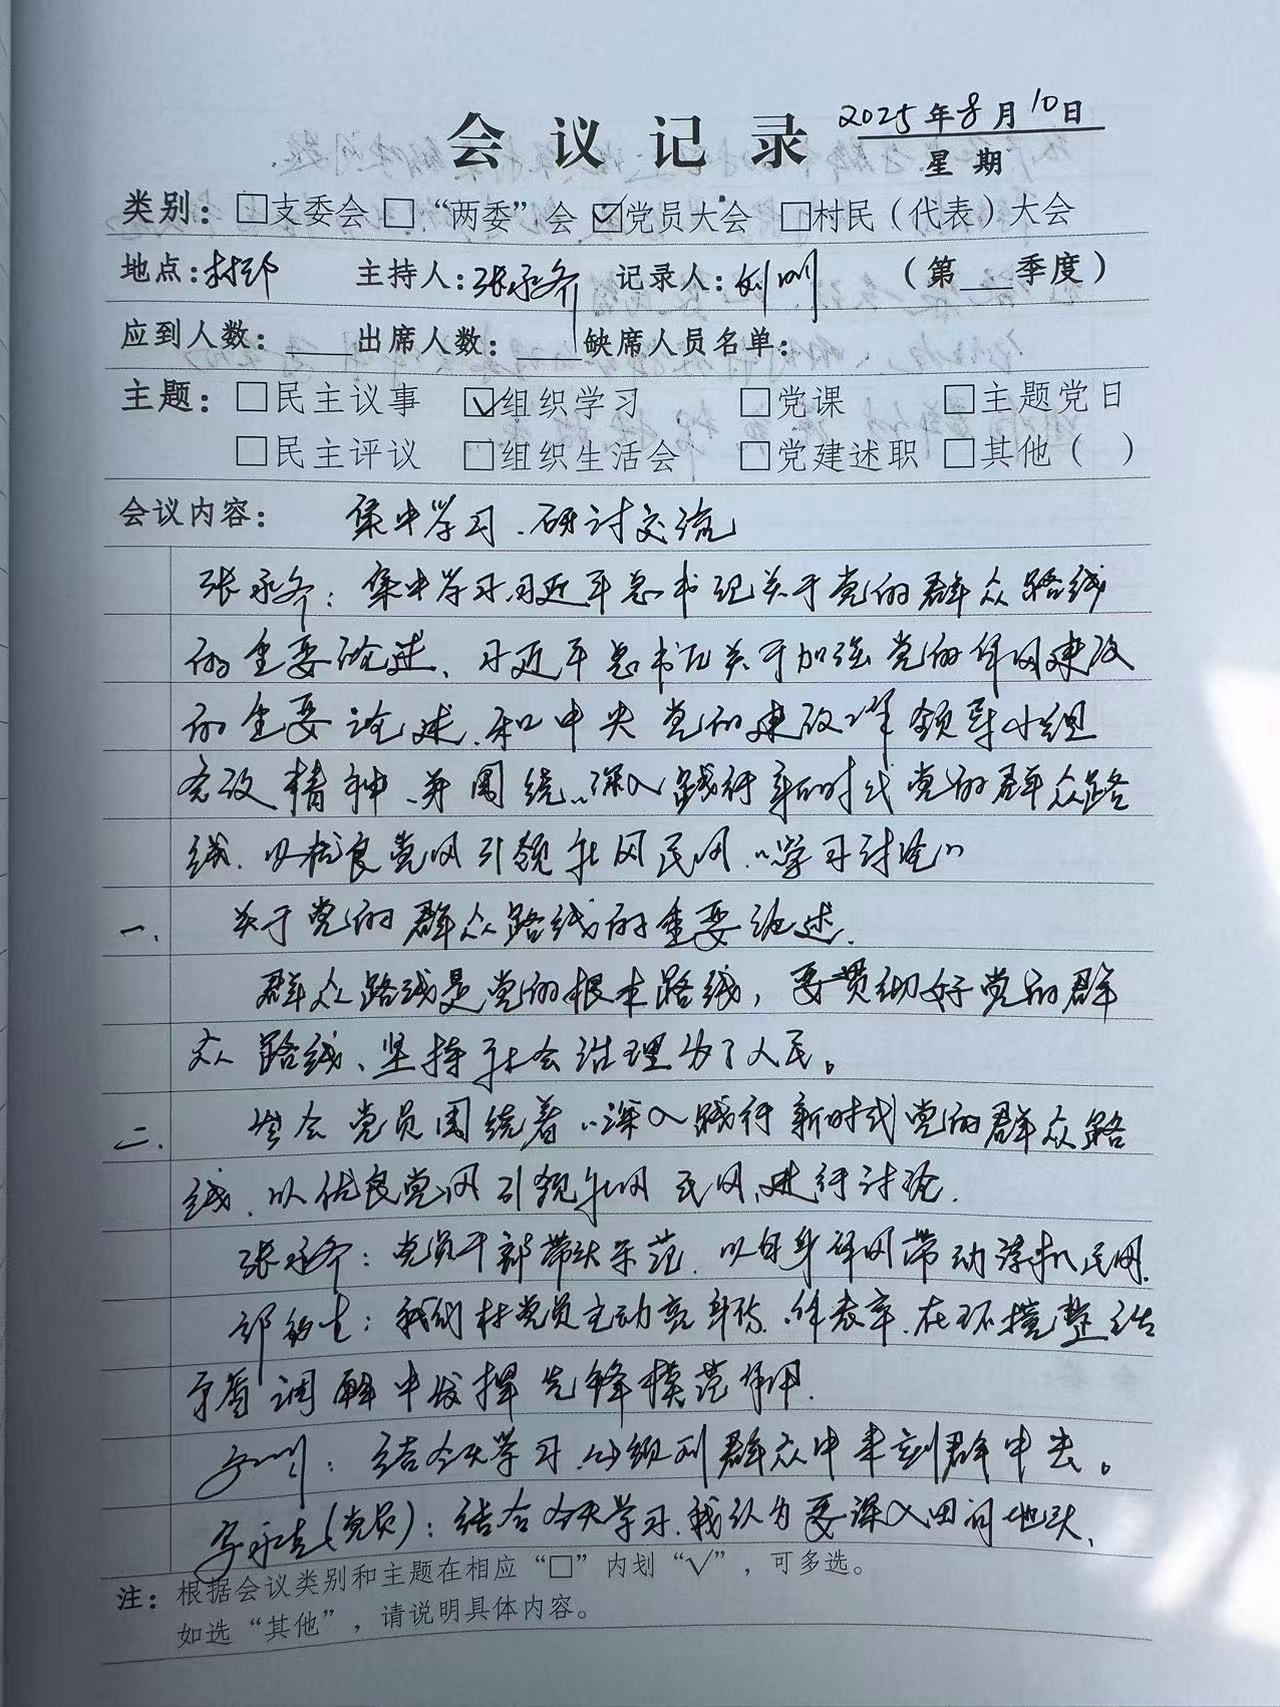 会议记录
2025年8月10日
星期
类别：□支委会 □“两委”会 ☑党员大会 □村民（代表）大会
地点：村部 主持人：张永齐 记录人：刘刚 （第___季度）
应到人数：____出席人数：____缺席人员名单：
主题：□民主议事 ☑组织学习 □党课 □主题党日
□民主评议 □组织生活会 □党建述职 □其他（ ）
会议内容： 集中学习、研讨交流
张永齐：集中学习习近平总书记关于党的群众路线
的重要论述、习近平总书记关于加强党的作风建设
的重要论述、和中央党的建设工作领导小组
会议精神、并围绕“深入践行新时代党的群众路
线、以优良党风引领社风民风”“学习讨论”
一、 关于党的群众路线的重要论述.
群众路线是党的根本路线，要贯彻好党的群
众路线、坚持社会治理为了人民。
二、 与会党员围绕着“深入践行新时代党的群众路
线、以优良党风引领社风民风、进行讨论.
张永齐：党员干部带头示范、以自身作风带动淳朴民风.
我们村党员主动亮身份、作表率、在环境整治
矛盾调解中发挥先锋模范作用.
：结合今天学习、必须到群众中来到群中去。
（党员）：结合今天学习、我认为要深入田间地头、
注：根据会议类别和主题在相应“□”内划“√”，可多选。
如选“其他”，请说明具体内容。